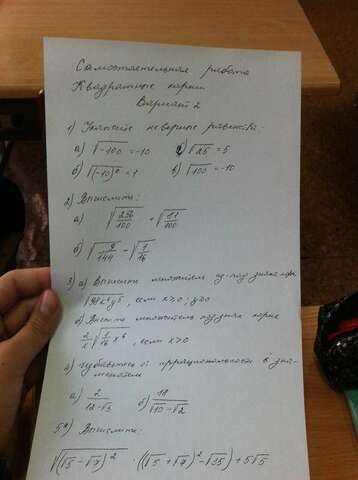 Самостоятельная работа
Квадратные корни
Вариант 2
1) Укажите неверные равенства:
а) √-100 = -10 б) √25 = 5
б) √(-10)⁰ = 1 в) √100 = -10
2) Вычислить:
а) √(256/100) + √(11/100)
б) √(9/144) - √(1/16)
3) а) Вынести множитель из-под знака
√98x⁴y⁵, если x>0; y>0
б) Внести множитель под знак корня
2/x √(1/16 x⁶), если x>0
от иррациональности в зна-
менателе
а) 2/(12-√3) б) 18/(√10-√2)
5*) Вычислить:
√(√5-√7)² · ((√5+√7)²-√35)+5√5